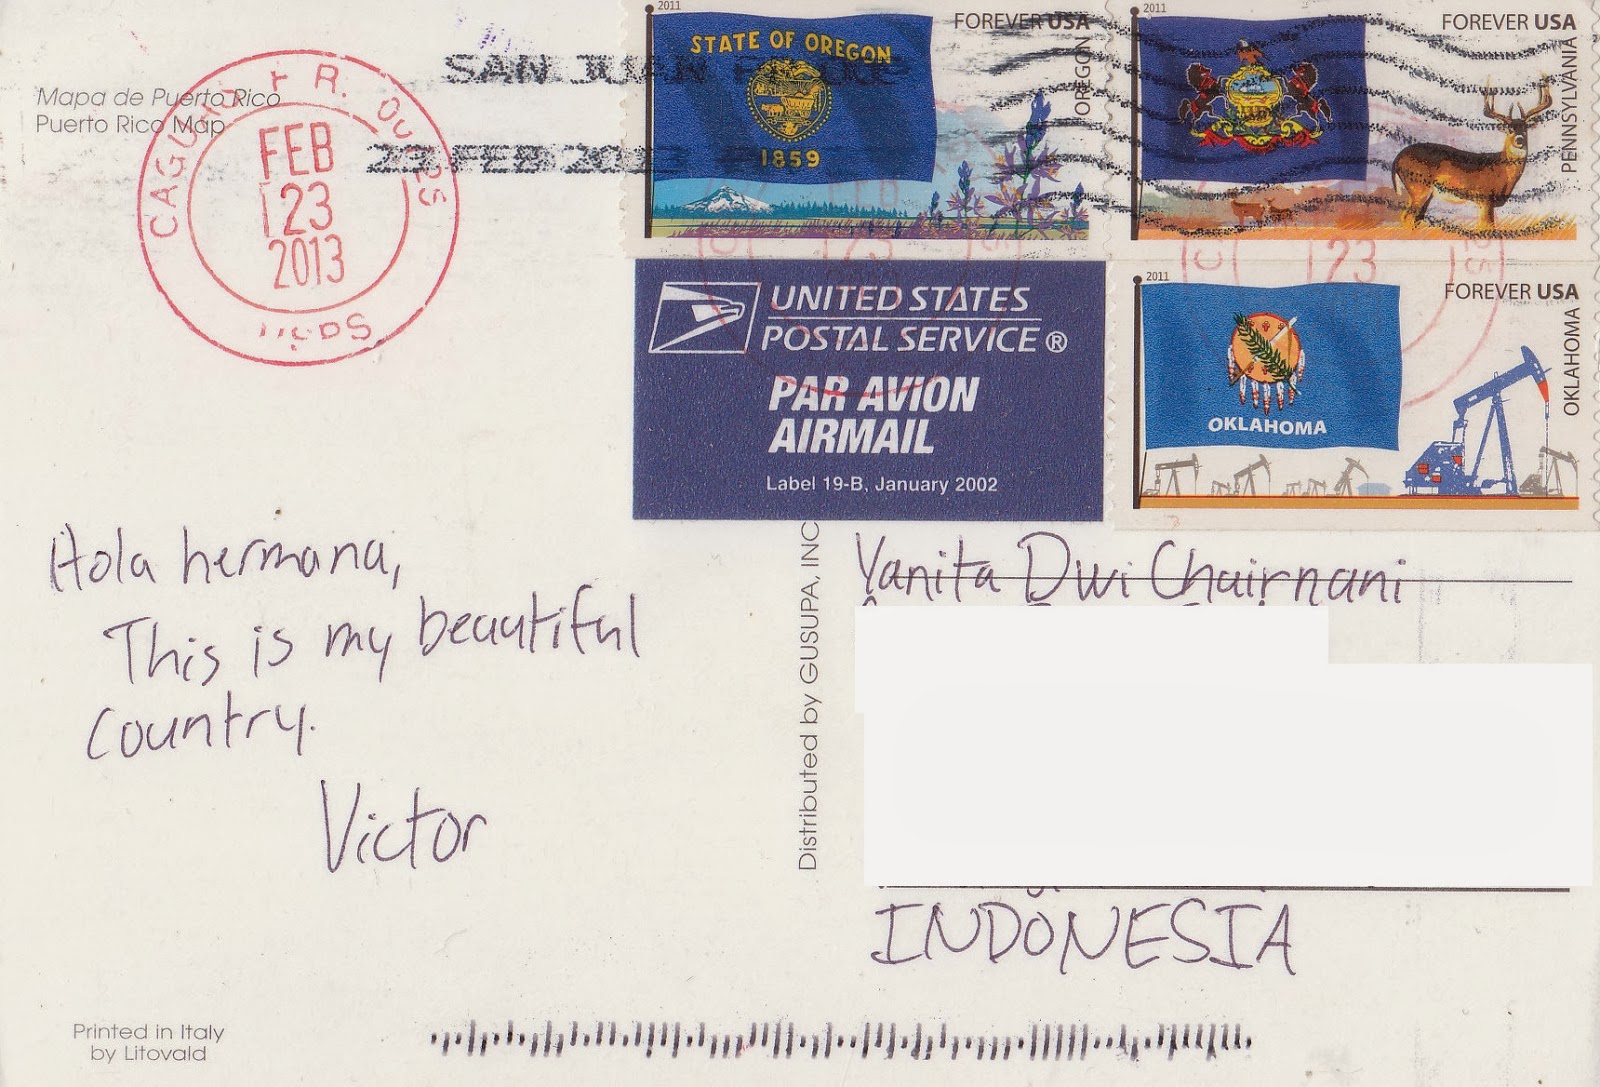 Mapa de Puerto Rico
Puerto Rico Map
FEB
23
2013
USPS
SAN JUAN
FEB 2013
2011
FOREVER USA
OREGON
STATE OF OREGON
1859
2011
FOREVER USA
PENNSYLVANIA
UNITED STATES
POSTAL SERVICE®
PAR AVION
AIRMAIL
Label 19-B, January 2002
2011
FOREVER USA
OKLAHOMA
OKLAHOMA
Hola hermana,
This is my beautiful
country.
Victor
Distributed by GUSUPA, INC
Yanita Dwi Chairnani
INDONESIA
Printed in Italy
by Litovald